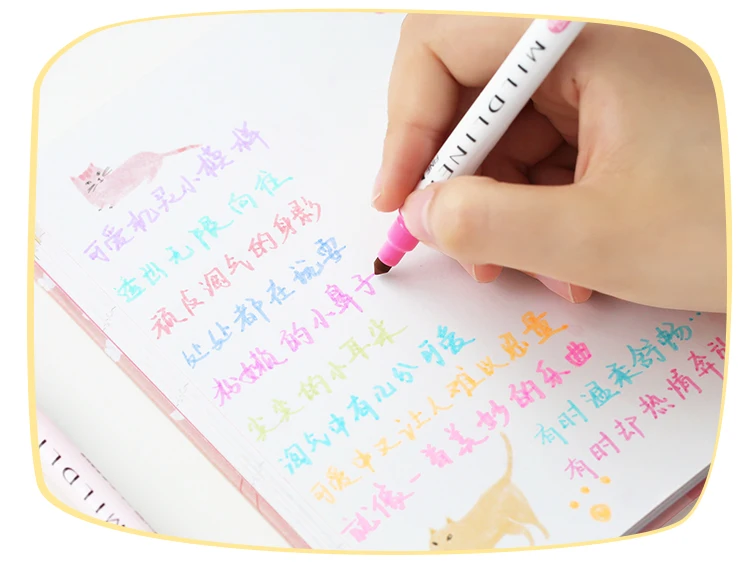 可爱机灵小模样
透出无限向往
顽皮淘气的身影
处处都在玩耍
松软的小鼻子
尖尖的小耳朵
淘气中有几分可爱
可爱中又让人难以思量
就像一首美妙的乐曲
有时温柔舒畅…
有时却热情奔放
MILDLINER
MILDLI